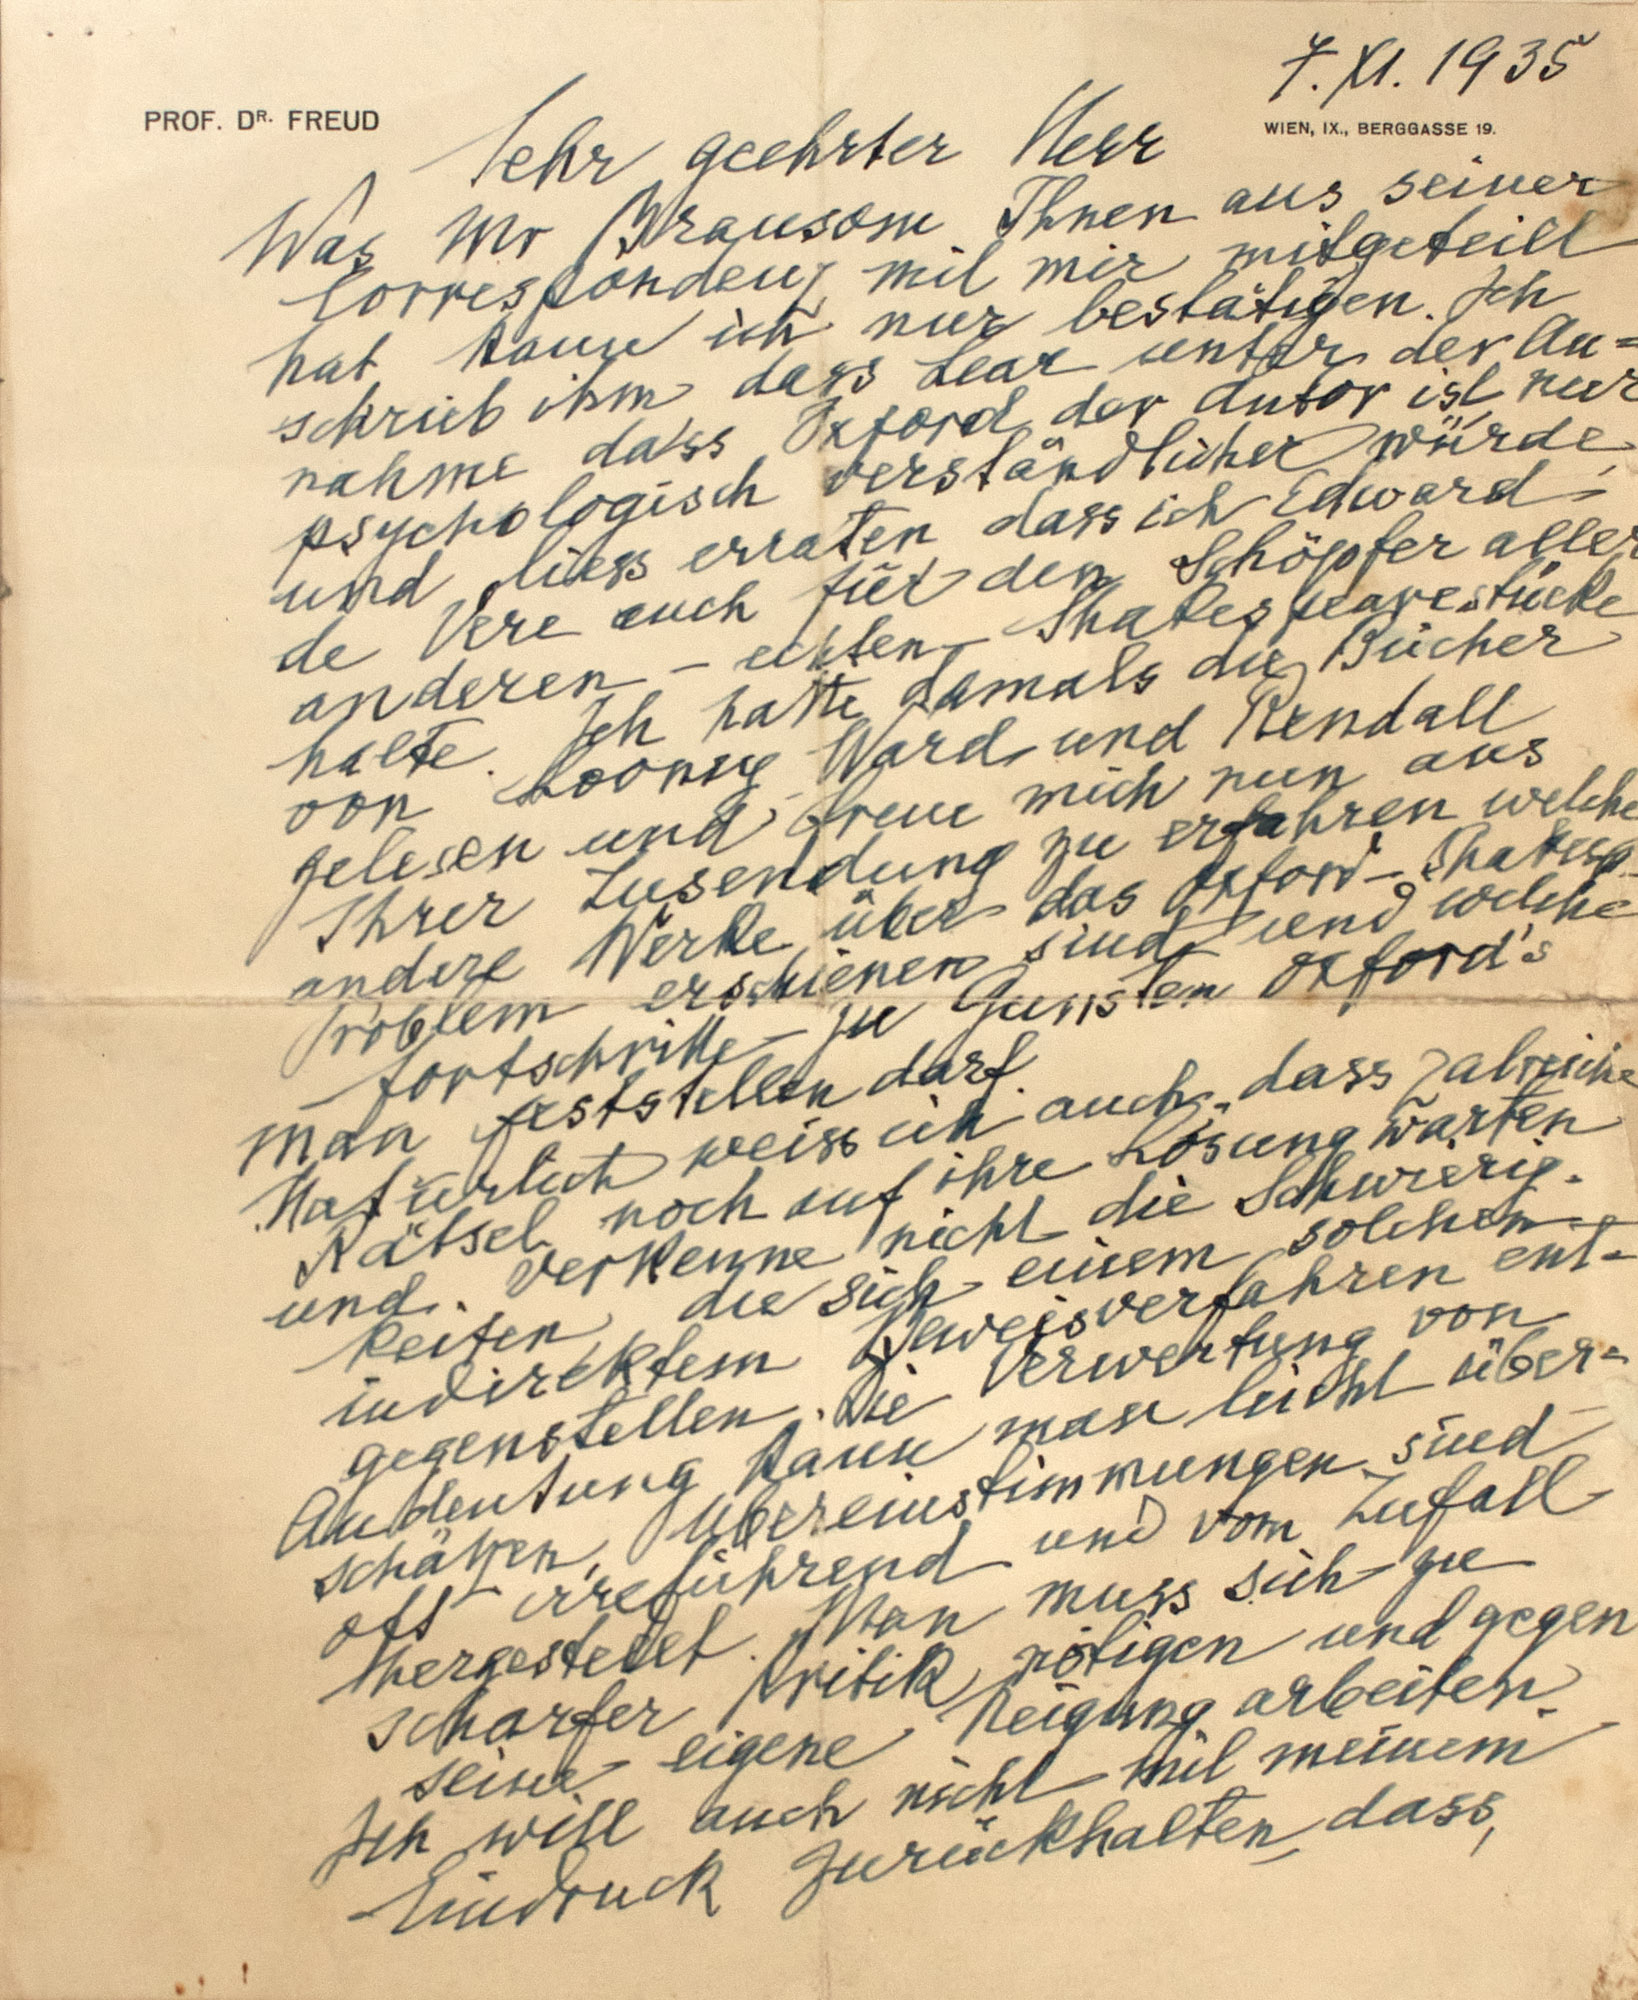 7. XI. 1935
PROF. DR. FREUD
WIEN, IX., BERGGASSE 19.
Sehr geehrter Herr
Was Mr Bransom Ihnen aus seiner
Correspondenz mit mir mitgeteilt
hat kann ich nur bestätigen. Ich
schrieb ihm dass Lear unter der An=
nahme dass Oxford der Autor ist nur
psychologisch verständlicher würde,
und liess erraten dass ich Edward
de Vere auch für den Schöpfer aller
anderen – echten – Shakespearestücke
halte. Ich hatte damals die Bücher
von Looney Ward und Rendall
gelesen und freue mich nun aus
Ihrer Zusendung zu erfahren welche
andere Werke über das Oxford–Shakesp.
Problem erschienen sind und welche
Fortschritte zu Gunsten Oxford's
man feststellen darf.
Natürlich weiss ich auch, dass zalreiche
Rätsel noch auf ihre Lösung warten
und verkenne nicht die Schwierig-
keiten die sich einem solchen
indirektem Beweisverfahren ent-
gegenstellen. Die Verwertung von
Andeutung kann man leicht über=
schätzen, Übereinstimmungen sind
oft irreführend und vom Zufall
hergestellt. Man muss sich zu
scharfer Kritik nötigen und gegen
seine eigene Neigung arbeiten.
Ich will auch nicht mit meinem
Eindruck zurückhalten, dass,